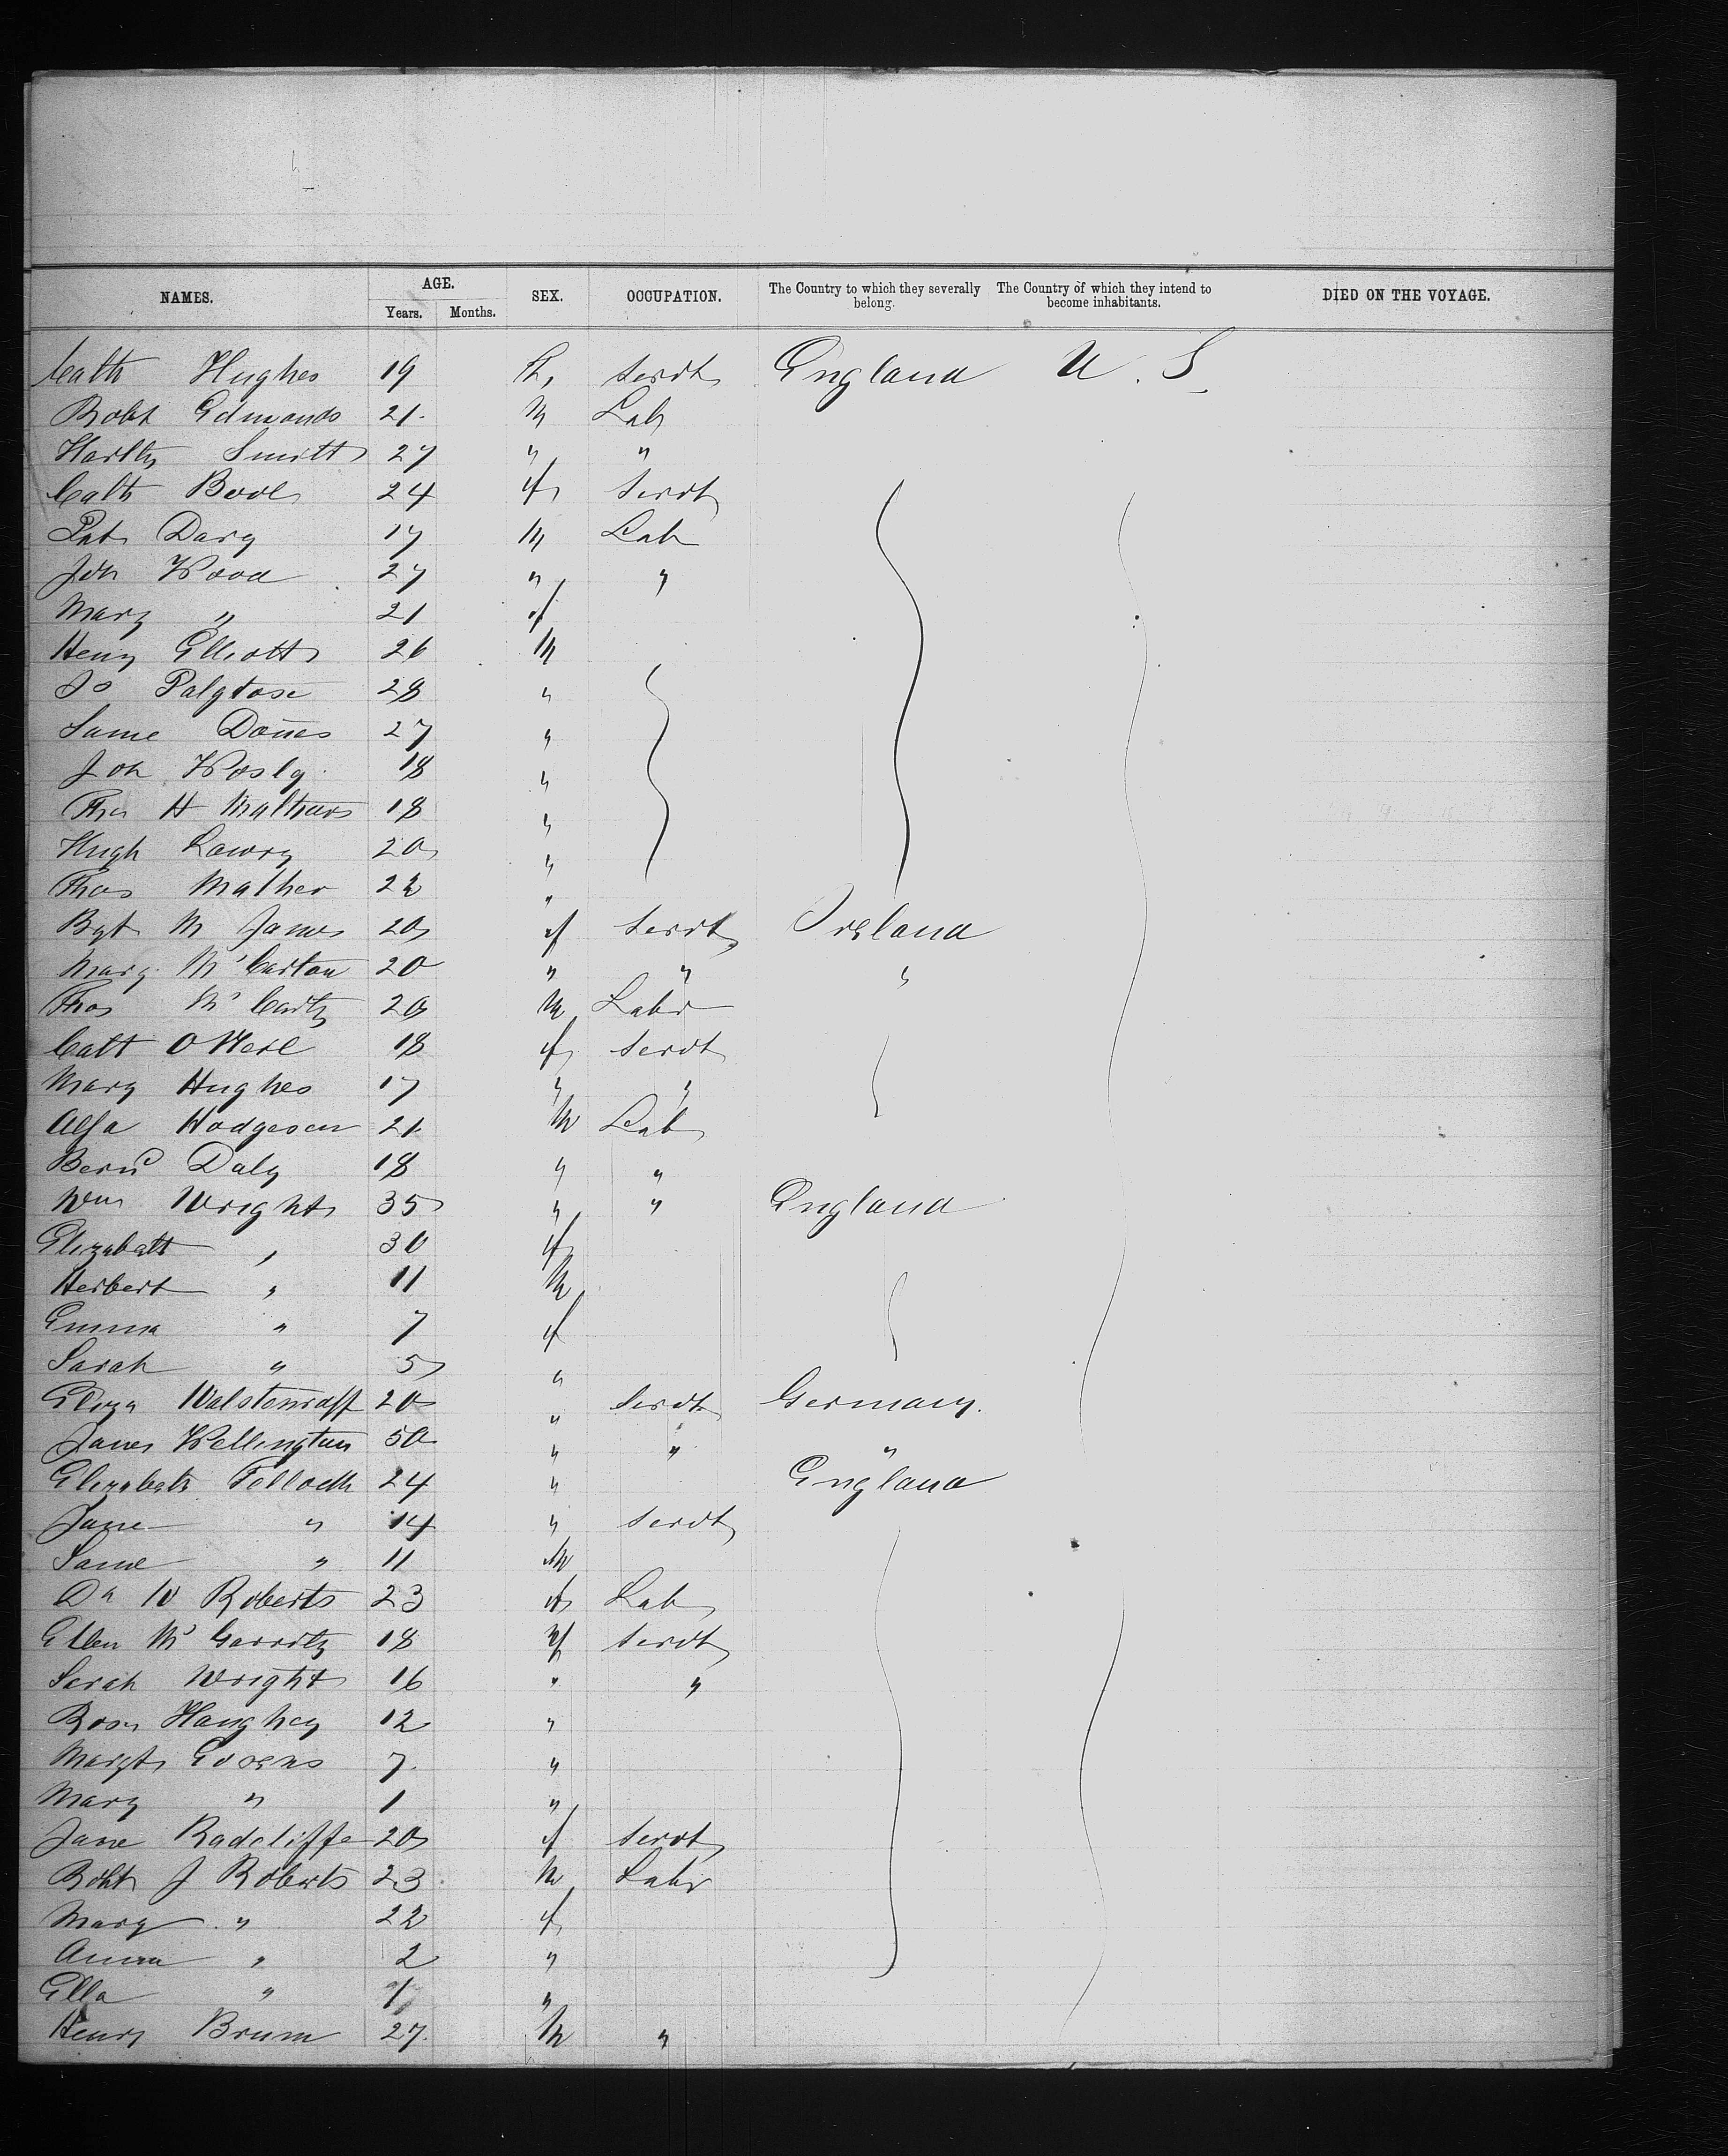 NAMES. AGE. SEX. OCCUPATION. The Country to which they severally belong. The Country of which they intend to become inhabitants. DIED ON THE VOYAGE.
Years. Months.
Cath Hughes 19 Servt England U. S.
Robt Edmands 21 M Lab
Smith 27 " "
Cath 24 f Servt
Pat Darcy 17 M Lab
Jon Wood 27 " "
Mary " 21 f
Henry Elliott 26 M
Jo 28 "
27 "
Jon 18 "
Thos H 18 "
Hugh Lowry 20 "
Thos Mather 22 "
Bgt M James 20 f Servt Ireland
Mary McCartan 20 " " "
Thos McCarty 20 M Labr
Cath O 18 f Servt
Mary Hughes 17 " "
Alfd Hodgeson 21 M Lab
Bernd Daly 18 " "
Wm Wright 35 " " England
Elizabeth " 30 f
Herbert " 11 M
Emma " 7 f
Sarah " 5 "
Eliza 20 " Servt Germany.
Wellington 50 " " "
Elizabeth 24 " England
Jane " 14 " Servt
" 11 M
W Roberts 23 Lab
Ellen McGarrity 18 f Servt
Sarah Wright 16 " "
Rose Haughey 12 "
Margt 7 "
Mary " 1 "
Jane Radcliffe 20 f Servt
Robt J Roberts 23 M Labr
Mary " 22 f
Anna " 2 "
Ella " "
Henry Brum 27 M "